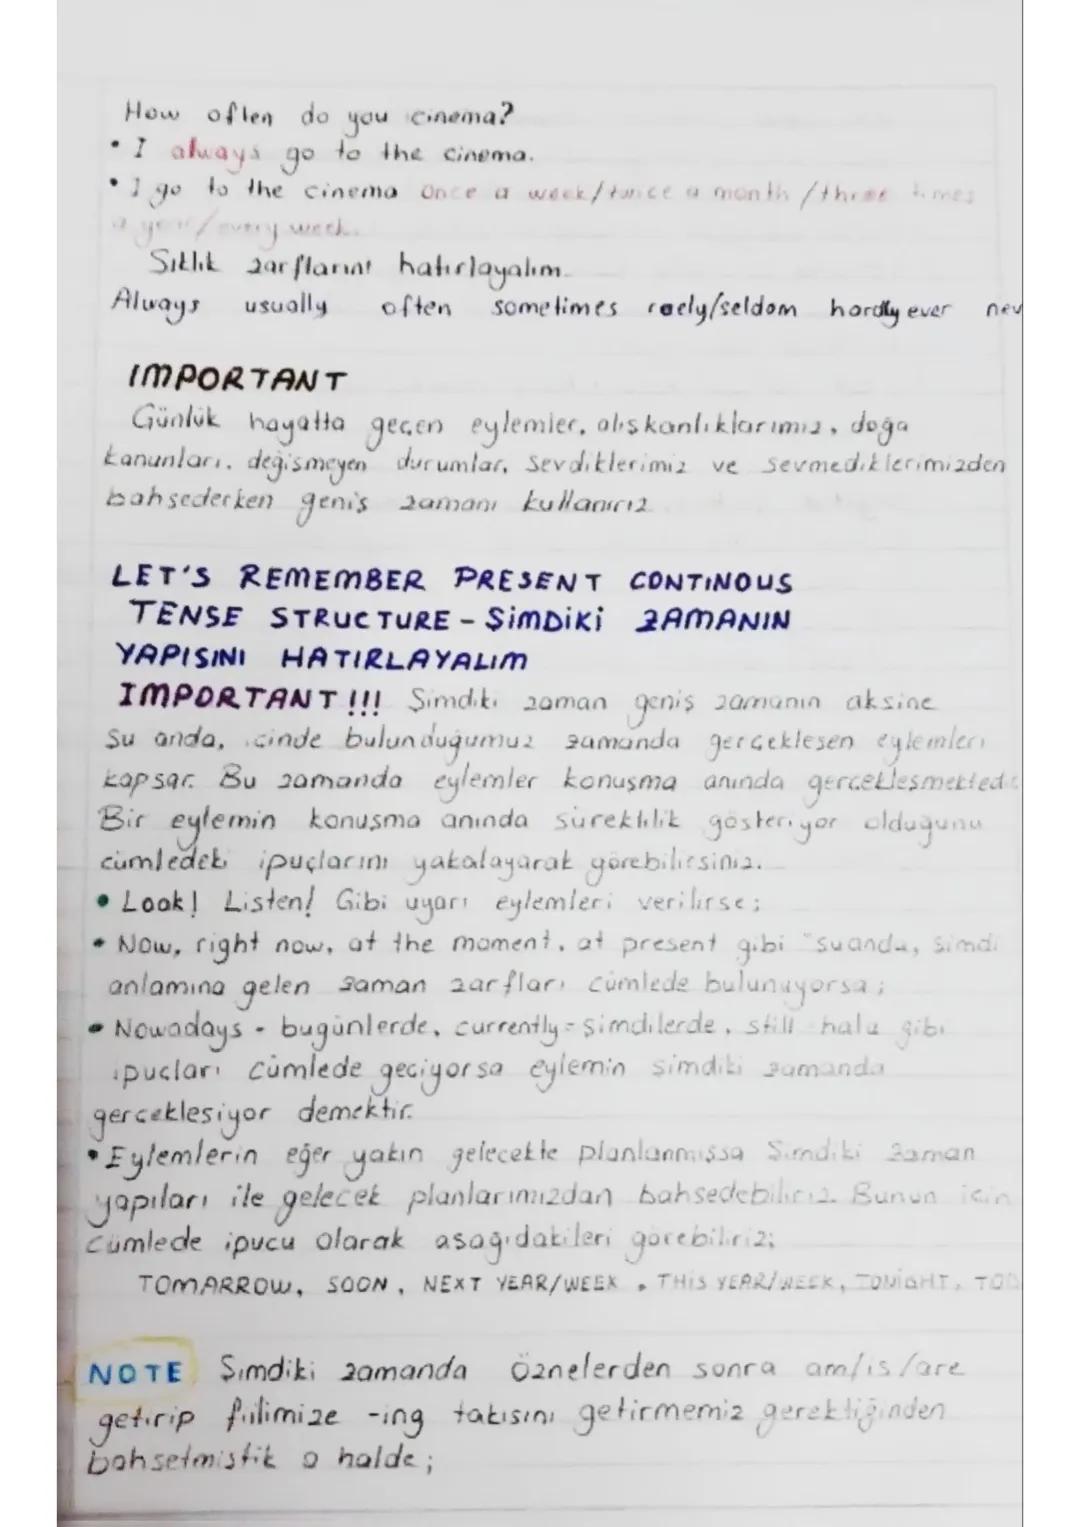 How often do you cinema?
• I always go to the cinema.
• I go to the cinema once a week/twice a month/three times
a year/every week.
Sıklık zarflarını hatırlayalım.
Always usually often sometimes raely/seldom hardly ever nev
IMPORTANT
Günlük hayatta geçen eylemler, alışkanlıklarımız, doğa
kanunları, değişmeyen durumlar, sevdiklerimiz ve sevmediklerimizden
bahsederken geniş zamanı kullanırız.
LET'S REMEMBER PRESENT CONTINOUS
TENSE STRUCTURE - ŞİMDİKİ ZAMANIN
YAPISINI HATIRLAYALIM
IMPORTANT!!! Şimdiki zaman geniş zamanın aksine
Şu anda, içinde bulunduğumuz zamanda gerçekleşen eylemleri
kapsar. Bu zamanda eylemler konuşma anında gerçekleşmektedi
Bir eylemin konuşma anında süreklilik gösteriyor olduğunu
cümledeki ipuçlarını yakalayarak görebilirsiniz.
• Look! Listen! Gibi uyarı eylemleri verilirse;
• Now, right now, at the moment, at present gibi "şuanda, şimdi
anlamına gelen zaman zarfları cümlede bulunuyorsa;
• Nowadays - bugünlerde, currently = şimdilerde, still hala gibi
ipuçları cümlede geçiyorsa eylemin şimdiki zamanda
gerçekleşiyor demektir.
• Eylemlerin eğer yakın gelecekte planlanmışsa Şimdiki zaman
yapıları ile gelecek planlarımızdan bahsedebiliriz. Bunun için
cümlede ipucu olarak aşağıdakileri görebiliriz;
TOMARROW, SOON, NEXT YEAR/WEEK, THIS YEAR/WEEK, TONIGHT, TOD
NOTE Şimdiki zamanda Öznelerden sonra am/is/are
getirip fiilimize -ing takısını getirmemiz gerektiğinden
bahsetmistik o halde;